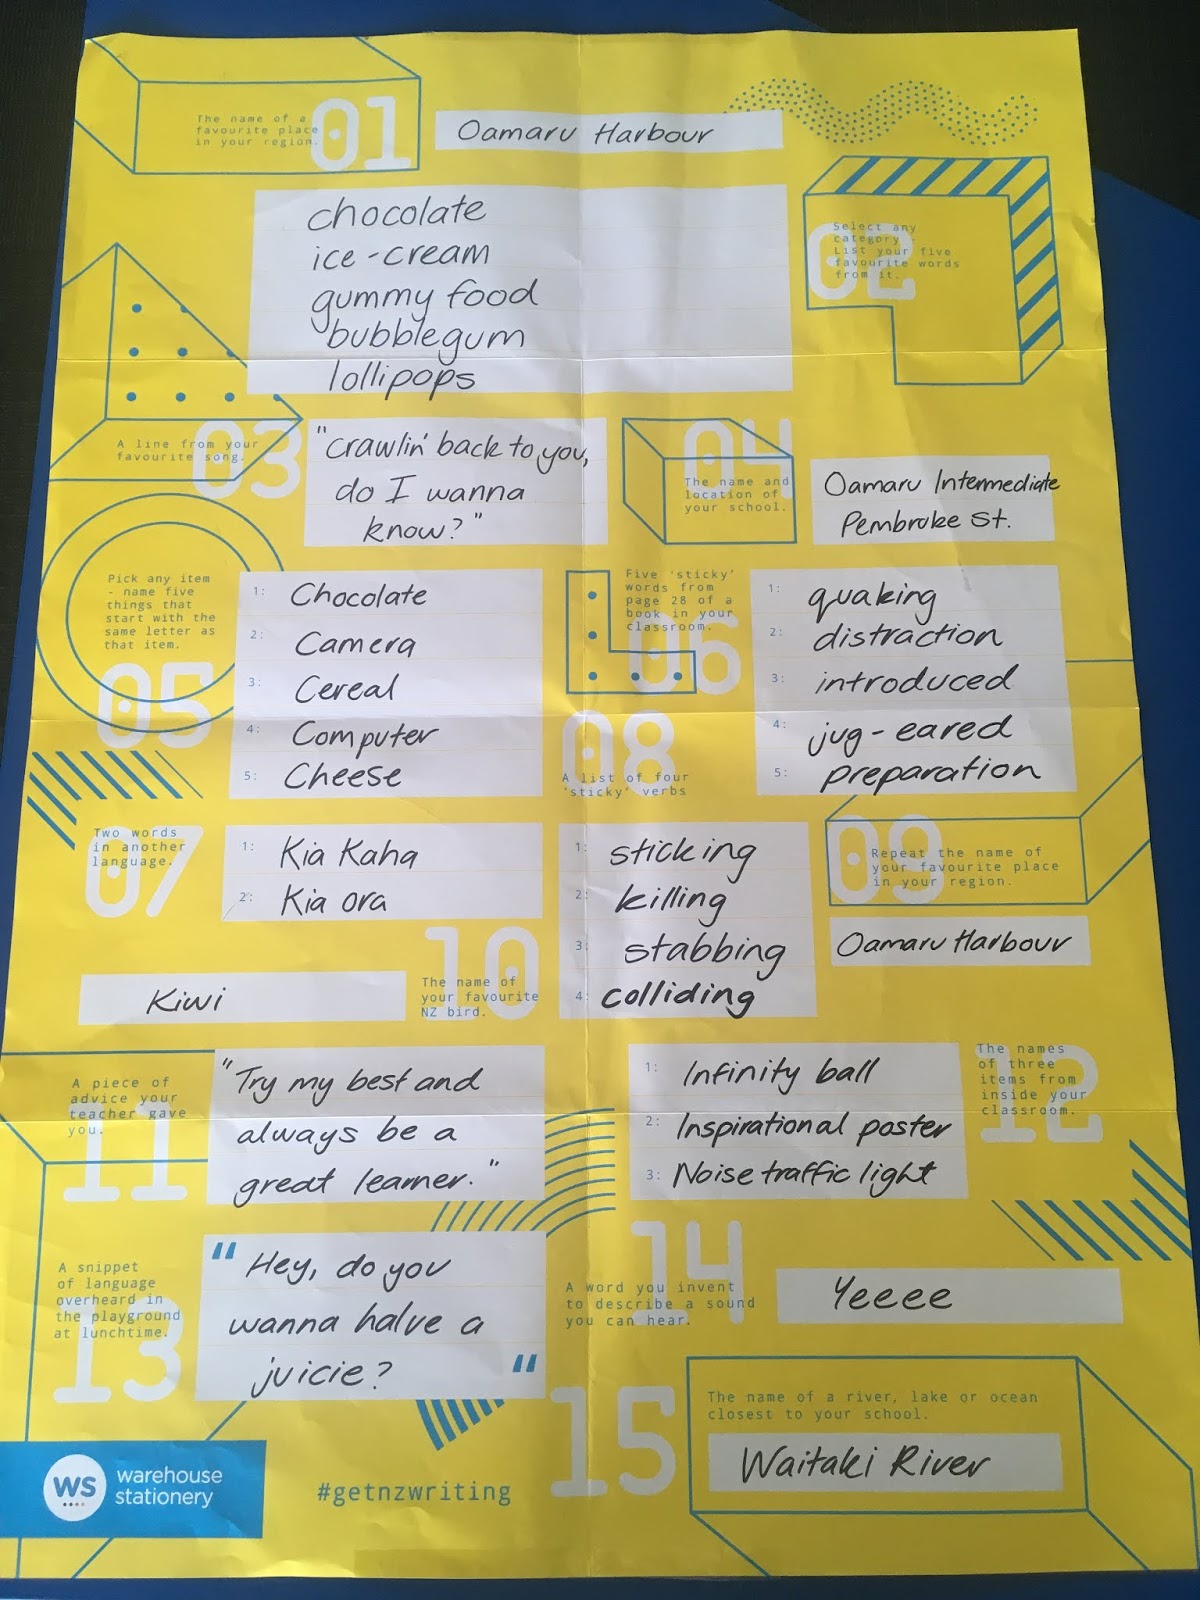 01
The name of a
favourite place
in your region.
Oamaru Harbour
chocolate
ice-cream
gummy food
bubblegum
lollipops
02
Select any
category -
List your five
favourite words
from it.
03
A line from your
favourite song.
"Crawlin' back to you,
do I wanna
know?"
04
The name and
location of
your school.
Oamaru Intermediate
Pembroke St.
05
Pick any item
- name five
things that
start with the
same letter as
that item.
1: Chocolate
2: Camera
3: Cereal
4: Computer
5: Cheese
06
Five 'sticky'
words from
page 28 of a
book in your
classroom.
1: quaking
2: distraction
3: introduced
4: jug-eared
5: preparation
07
Two words
in another
language.
1: Kia Kaha
2: Kia ora
08
A list of four
'sticky' verbs
1: sticking
2: killing
3: stabbing
4: colliding
09
Repeat the name of
your favourite place
in your region.
Oamaru Harbour
10
The name of
your favourite
NZ bird.
Kiwi
11
A piece of
advice your
teacher gave
you.
"Try my best and
always be a
great learner."
12
The names
of three
items from
inside your
classroom.
1: Infinity ball
2: Inspirational poster
3: Noise traffic light
13
A snippet
of language
overheard in
the playground
at lunchtime.
" Hey, do you
wanna halve a
juicie? "
14
A word you invent
to describe a sound
you can hear.
Yeeee
15
The name of a river, lake or ocean
closest to your school.
Waitaki River
WS
warehouse
stationery
#getnzwriting